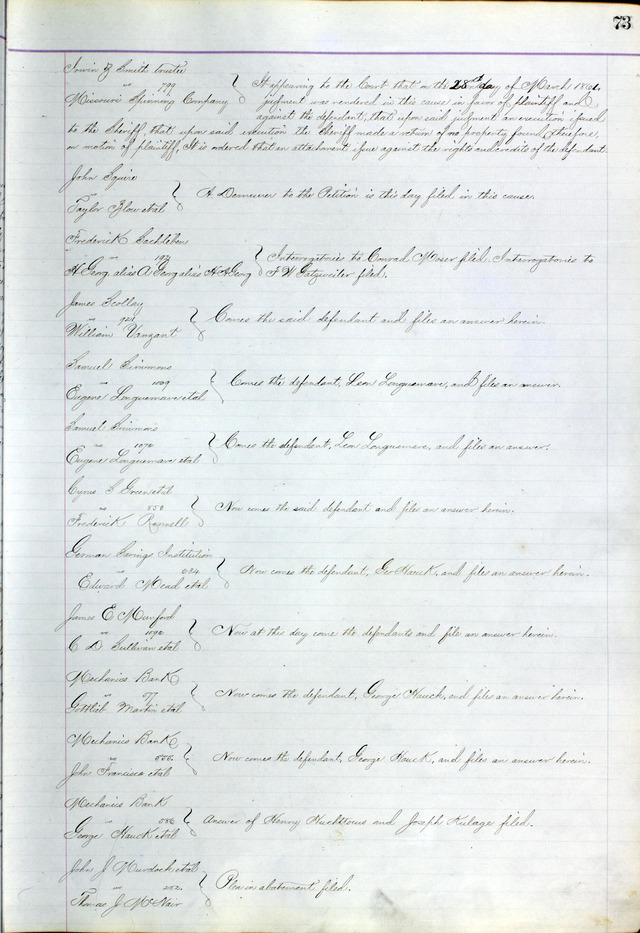 73
Irwin Z Smith trustee
vs 1799
Missouri Spinning Company
It appearing to the Court that on the 28th day of March 1861,
judgment was rendered in this cause in favor of plaintiff and
against the defendant, that upon said judgment an execution issued
to the Sheriff, that upon said execution the Sheriff made a return of no property found, therefore,
on motion of plaintiff, It is ordered that an attachment issue against the rights and credits of the defendant.
John Squire
vs
Taylor Blow etal
A Demurrer to the Petition is this day filed in this cause.
Frederick
vs
H Georg alias A Georg alias H A Georg
Interrogatories to Conrad Moser filed. Interrogatories to
F W Gatzweiler filed.
James Scollay
vs
William Vanzant
Comes the said defendant and files an answer herein.
Samuel Simmons
vs 1089
Eugene Longuemare etal
Comes the defendant, Leon Longuemare, and files an answer.
Samuel Simmons
vs 1090
Eugene Longuemare etal
Comes the defendant, Leon Longuemare, and files an answer.
Cyrus S Green etal
vs 850
Frederick
Now comes the said defendant and files an answer herein.
German Savings Institution
vs 684
Edward Mead etal
Now comes the defendant, Geo Hauck, and files an answer herein.
James E Munford
vs 1092
C D Sullivan etal
Now at this day come the defendants and file an answer herein.
Mechanics Bank
vs 577
Gottlieb Martin etal
Now comes the defendant, George Hauck, and files an answer herein.
Mechanics Bank
vs
John Francisco etal
Now comes the defendant, George Hauck, and files an answer herein.
Mechanics Bank
vs 586
George Hauck etal
Answer of Henry and Joseph Kulage filed.
John J Murdoch etal
vs 252
Thomas J McNair
Plea in abatement filed.